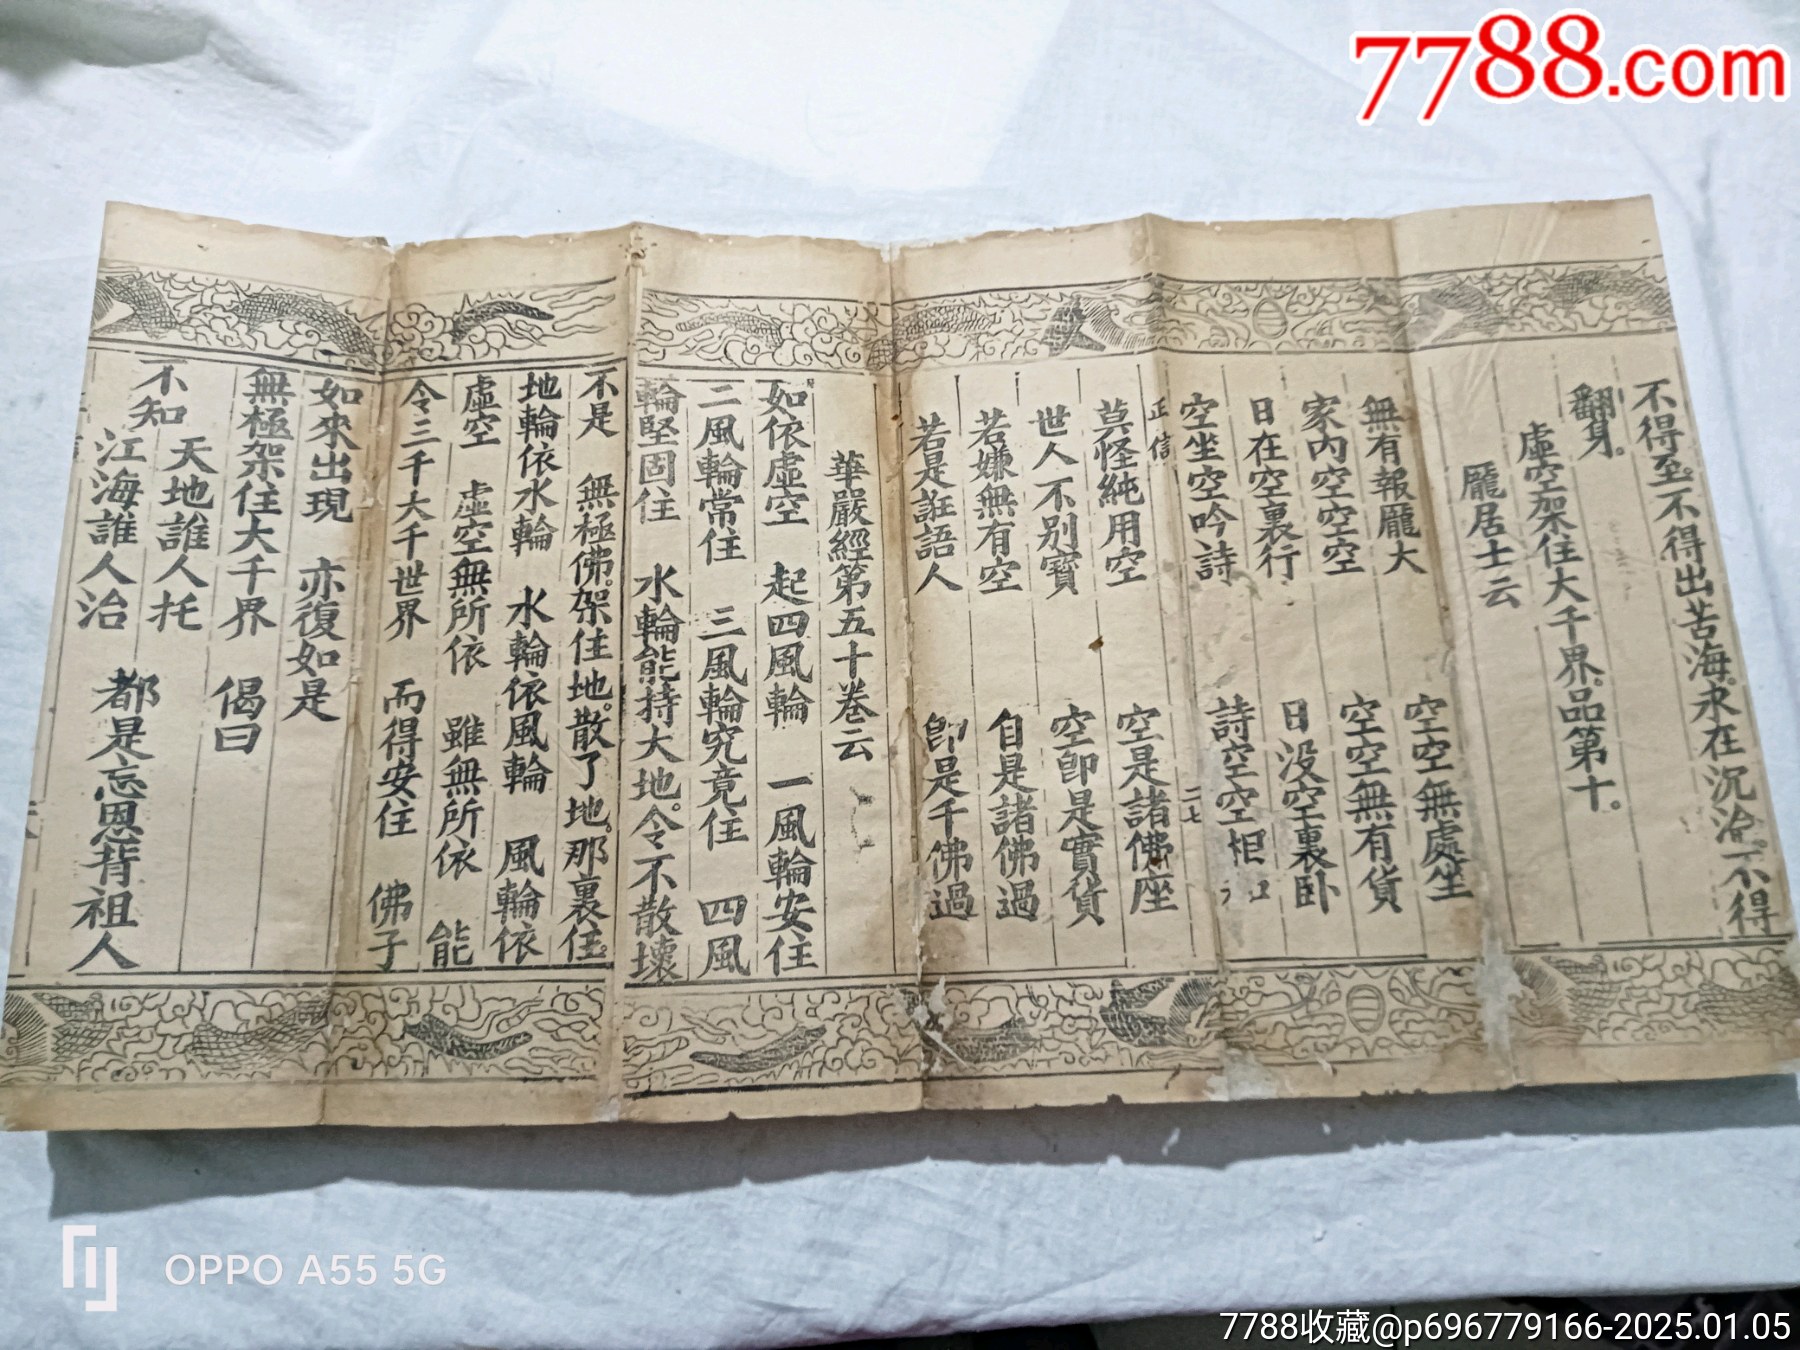 7788.com
不得至。不得出苦海。永在沉淪。不得
翻身。
虛空架住大千界。品第十。
龐居士云
無有報龐大 空空無處坐
家內空空空 空空無有貨
日在空裏行 日没空裏卧
空坐空吟詩 詩空空相和
正信 二七
莫怪純用空 空是諸佛座
世人不别寶 空即是實貨
若嫌無有空 自是諸佛過
若是誑語人 即是千佛過
華嚴經第五十卷云
如依虛空 起四風輪 一風輪安住
二風輪常住 三風輪究竟住 四風
輪堅固住 水輪能持大地。令不散壞
不是 無極佛。架住地。散了地。那裏住。
地輪依水輪 水輪依風輪 風輪依
虛空 虛空無所依 雖無所依 能
令三千大千世界 而得安住 佛子
如來出現 亦復如是
無極架住大千界 偈曰
不知 天地誰人托
江海誰人治 都是忘恩背祖人
OPPO A55 5G
7788收藏@p696779166-2025.01.05